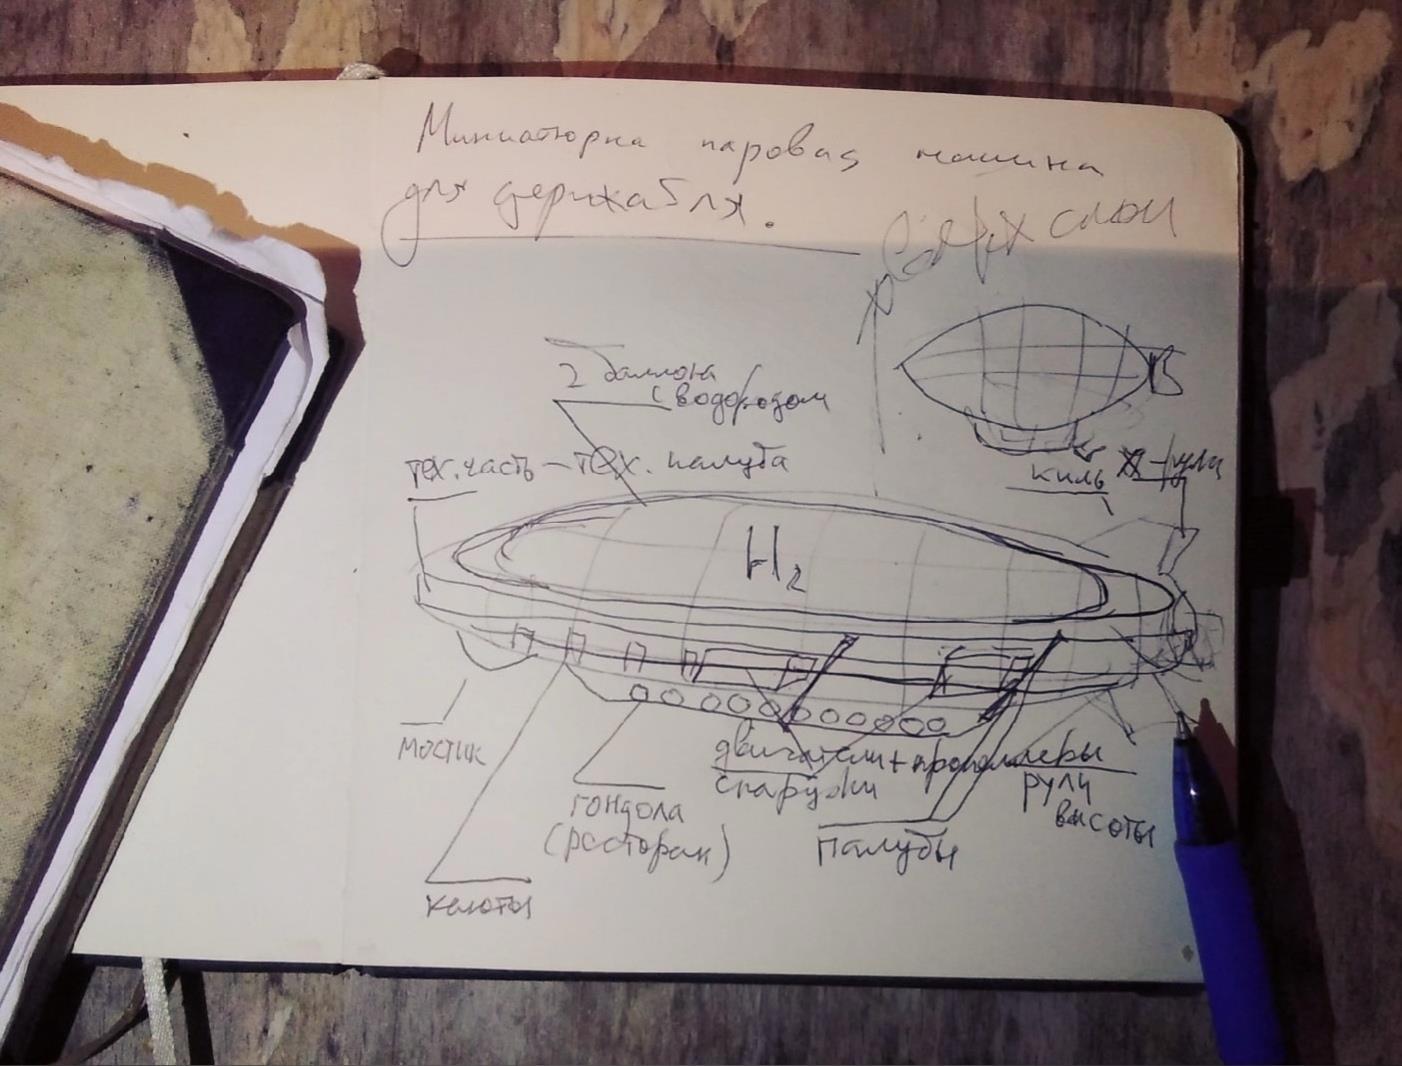 Миниатюрна паровая машина
для дерижабля.
2 баллона
с водородом
тех. часть – тех. палуба
киль
рули
H₂
мостик
двигатели + пропеллеры
снаружи
рули
высоты
гондола
(ресторан)
палубы
каюты